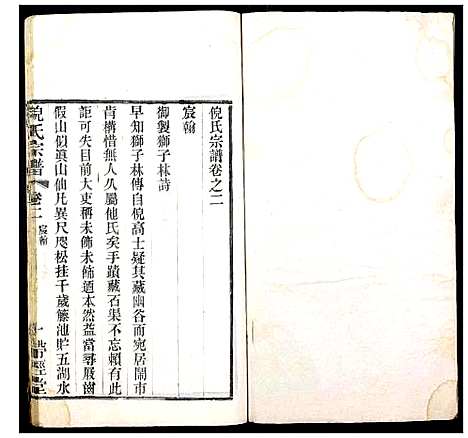 倪氏宗譜卷之二
宸翰
御製獅子林詩
早知獅子林傳自倪高士疑其藏幽谷而宛居鬧市
肯構惜無人久屬他氏矣手蹟藏石渠不忘賴有此
詎可失目前大吏稱未飾未飾適本然益當尋屐齒
假山似真山仙凡異尺咫松挂千歲藤池貯五湖水
倪氏宗譜
卷二
宸翰
一
經堂